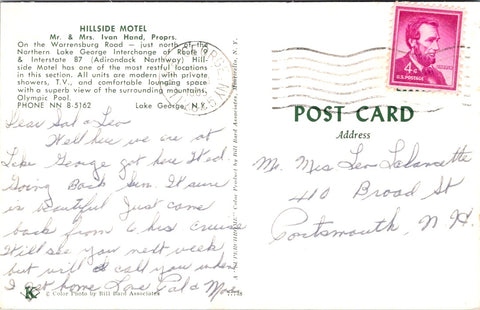 HILLSIDE MOTEL
Mr. & Mrs. Ivan Hand, Proprs.
On the Warrensburg Road — just north of the
Northern Lake George Interchange of Route 9
& Interstate 87 (Adirondack Northway) Hill-
side Motel has one of the most restful locations
in this section. All units are modern with private
showers, T.V., and comfortable lounging space
with a superb view of the surrounding mountains.
Olympic Pool.
PHONE NN 8-5162 Lake George, N.Y.
Dear Sal & Leo
Well here we are at
Lake George got here Wed.
Going Back Sun. It sure
is beautiful Just came
back from 6 hrs cruise
Will see you next week
but will call you when
I get home Love Pat & Mom
K
Color Photo by Bill Bard Associates
77748
Color Product by Bill Bard Associates, Monticello, N.Y.
4¢
U.S. POSTAGE
POST CARD
Address
Mr. Mrs Leo LaLancette
410 Broad St
Portsmouth, N.H.